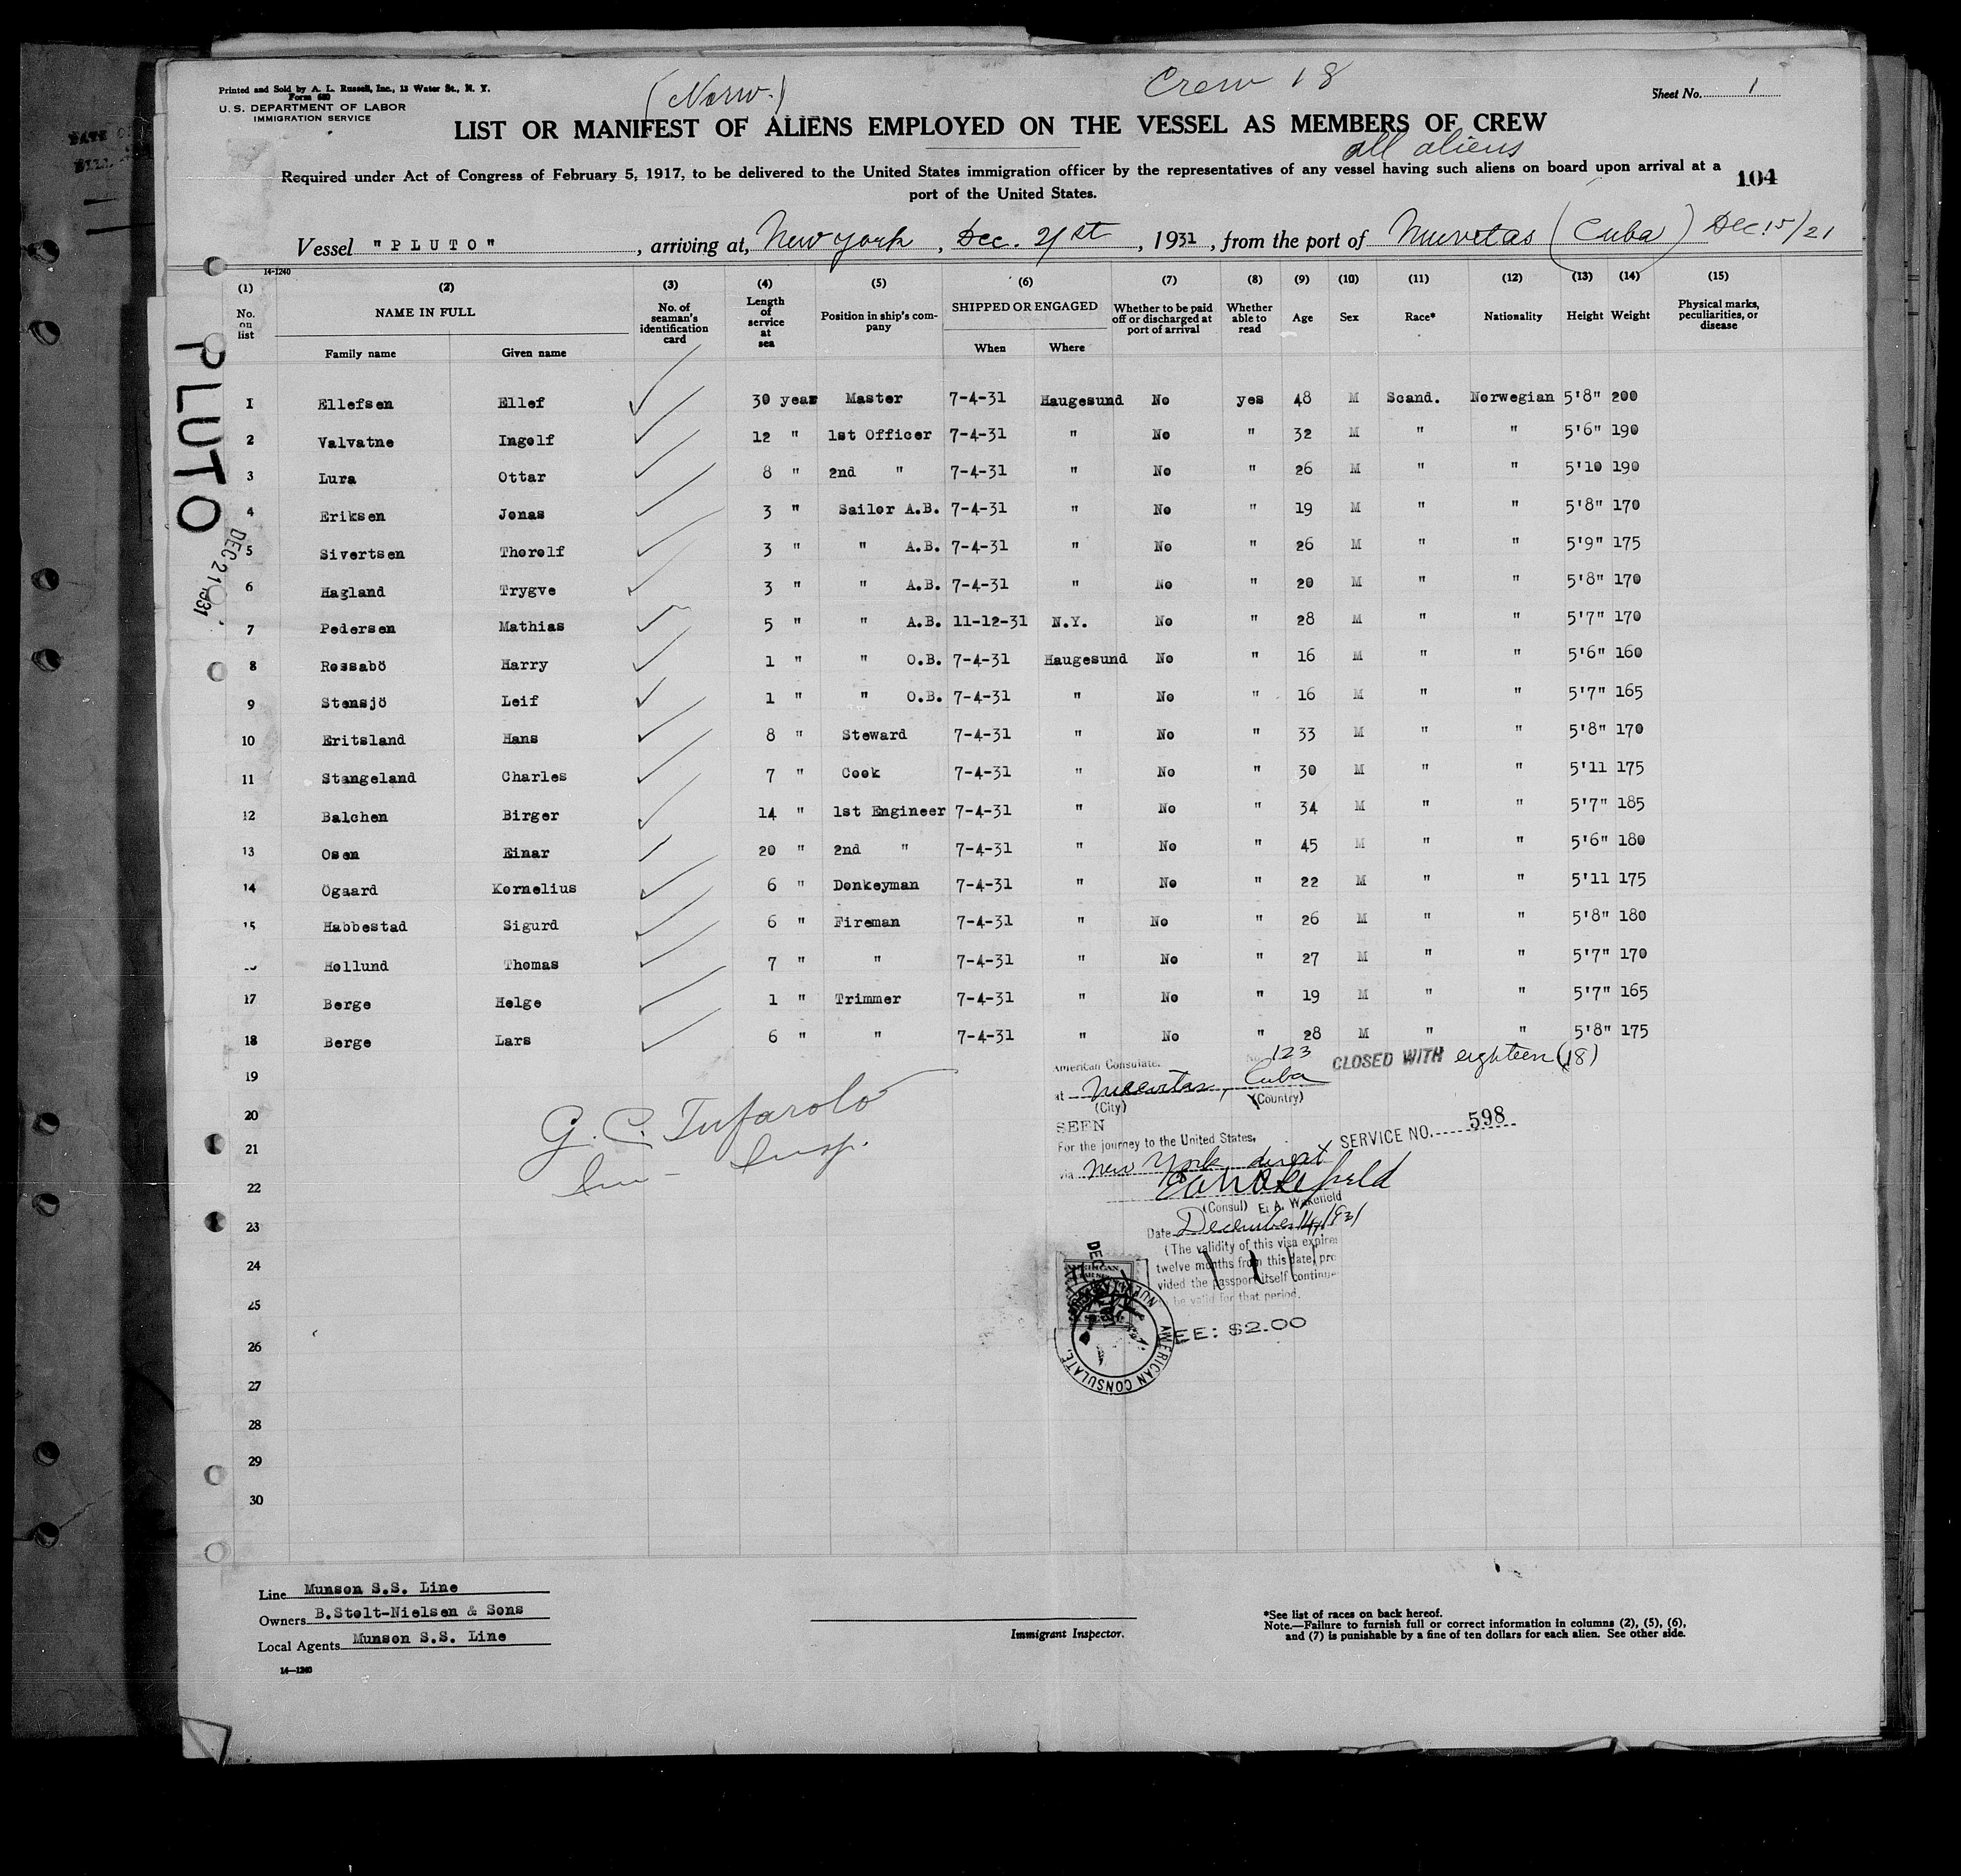 Printed and Sold by A. L. Russell, Inc., 13 Water St., N. Y.
Form 680
U. S. DEPARTMENT OF LABOR
IMMIGRATION SERVICE
(Norw.)
Crew 18
Sheet No. 1
LIST OR MANIFEST OF ALIENS EMPLOYED ON THE VESSEL AS MEMBERS OF CREW
all aliens
Required under Act of Congress of February 5, 1917, to be delivered to the United States immigration officer by the representatives of any vessel having such aliens on board upon arrival at a
port of the United States.
104
Vessel "PLUTO", arriving at, New York, Dec. 21st, 1931, from the port of Nuevitas (Cuba) Dec 15/21
14-1240
(1) (2) (3) (4) (5) (6) (7) (8) (9) (10) (11) (12) (13) (14) (15)
No. on list
NAME IN FULL
Family name Given name
No. of seaman's identification card
Length of service at sea
Position in ship's company
SHIPPED OR ENGAGED
When Where
Whether to be paid off or discharged at port of arrival
Whether able to read
Age
Sex
Race*
Nationality
Height
Weight
Physical marks, peculiarities, or disease
PLUTO
DEC 21 1931
1 Ellefsen Ellef 30 year Master 7-4-31 Haugesund No yes 48 M Scand. Norwegian 5'8" 200
2 Valvatne Ingolf 12 " 1st Officer 7-4-31 " No " 32 M " " 5'6" 190
3 Lura Ottar 8 " 2nd " 7-4-31 " No " 26 M " " 5'10 190
4 Eriksen Jonas 3 " Sailor A.B. 7-4-31 " No " 19 M " " 5'8" 170
5 Sivertsen Thorolf 3 " " A.B. 7-4-31 " No " 26 M " " 5'9" 175
6 Hagland Trygve 3 " " A.B. 7-4-31 " No " 20 M " " 5'8" 170
7 Pedersen Mathias 5 " " A.B. 11-12-31 N.Y. No " 28 M " " 5'7" 170
8 Rossabö Harry 1 " " O.B. 7-4-31 Haugesund No " 16 M " " 5'6" 160
9 Stensjö Leif 1 " " O.B. 7-4-31 " No " 16 M " " 5'7" 165
10 Eritsland Hans 8 " Steward 7-4-31 " No " 33 M " " 5'8" 170
11 Stangeland Charles 7 " Cook 7-4-31 " No " 30 M " " 5'11 175
12 Balchen Birger 14 " 1st Engineer 7-4-31 " No " 34 M " " 5'7" 185
13 Osen Einar 20 " 2nd " 7-4-31 " No " 45 M " " 5'6" 180
14 Ögaard Kornelius 6 " Donkeyman 7-4-31 " No " 22 M " " 5'11 175
15 Habbestad Sigurd 6 " Fireman 7-4-31 " No " 26 M " " 5'8" 180
Hollund Thomas 7 " " 7-4-31 " No " 27 M " " 5'7" 170
17 Berge Helge 1 " Trimmer 7-4-31 " No " 19 M " " 5'7" 165
18 Berge Lars 6 " " 7-4-31 " No " 28 M " " 5'8" 175
19
20
21
22
23
24
25
26
27
28
29
30
G. C. Tufarolo
Im - Insp.
American Consulate.
No. 123
CLOSED WITH eighteen (18)
at Nuevitas, Cuba
(City) (Country)
SEEN
For the journey to the United States,
SERVICE NO. 598
via New York direct
E A Wakefield
(Consul) E. A. Wakefield
Date December 14, 1931
(The validity of this visa expires
twelve months from this date, pro
vided the passport itself continu
be valid for that period.
FEE: $2.00
AMERICAN CONSULATE
Line Munson S.S. Line
Owners B.Stolt-Nielsen & Sons
Local Agents Munson S.S. Line
14-1240
Immigrant Inspector.
*See list of races on back hereof.
Note.—Failure to furnish full or correct information in columns (2), (5), (6),
and (7) is punishable by a fine of ten dollars for each alien. See other side.